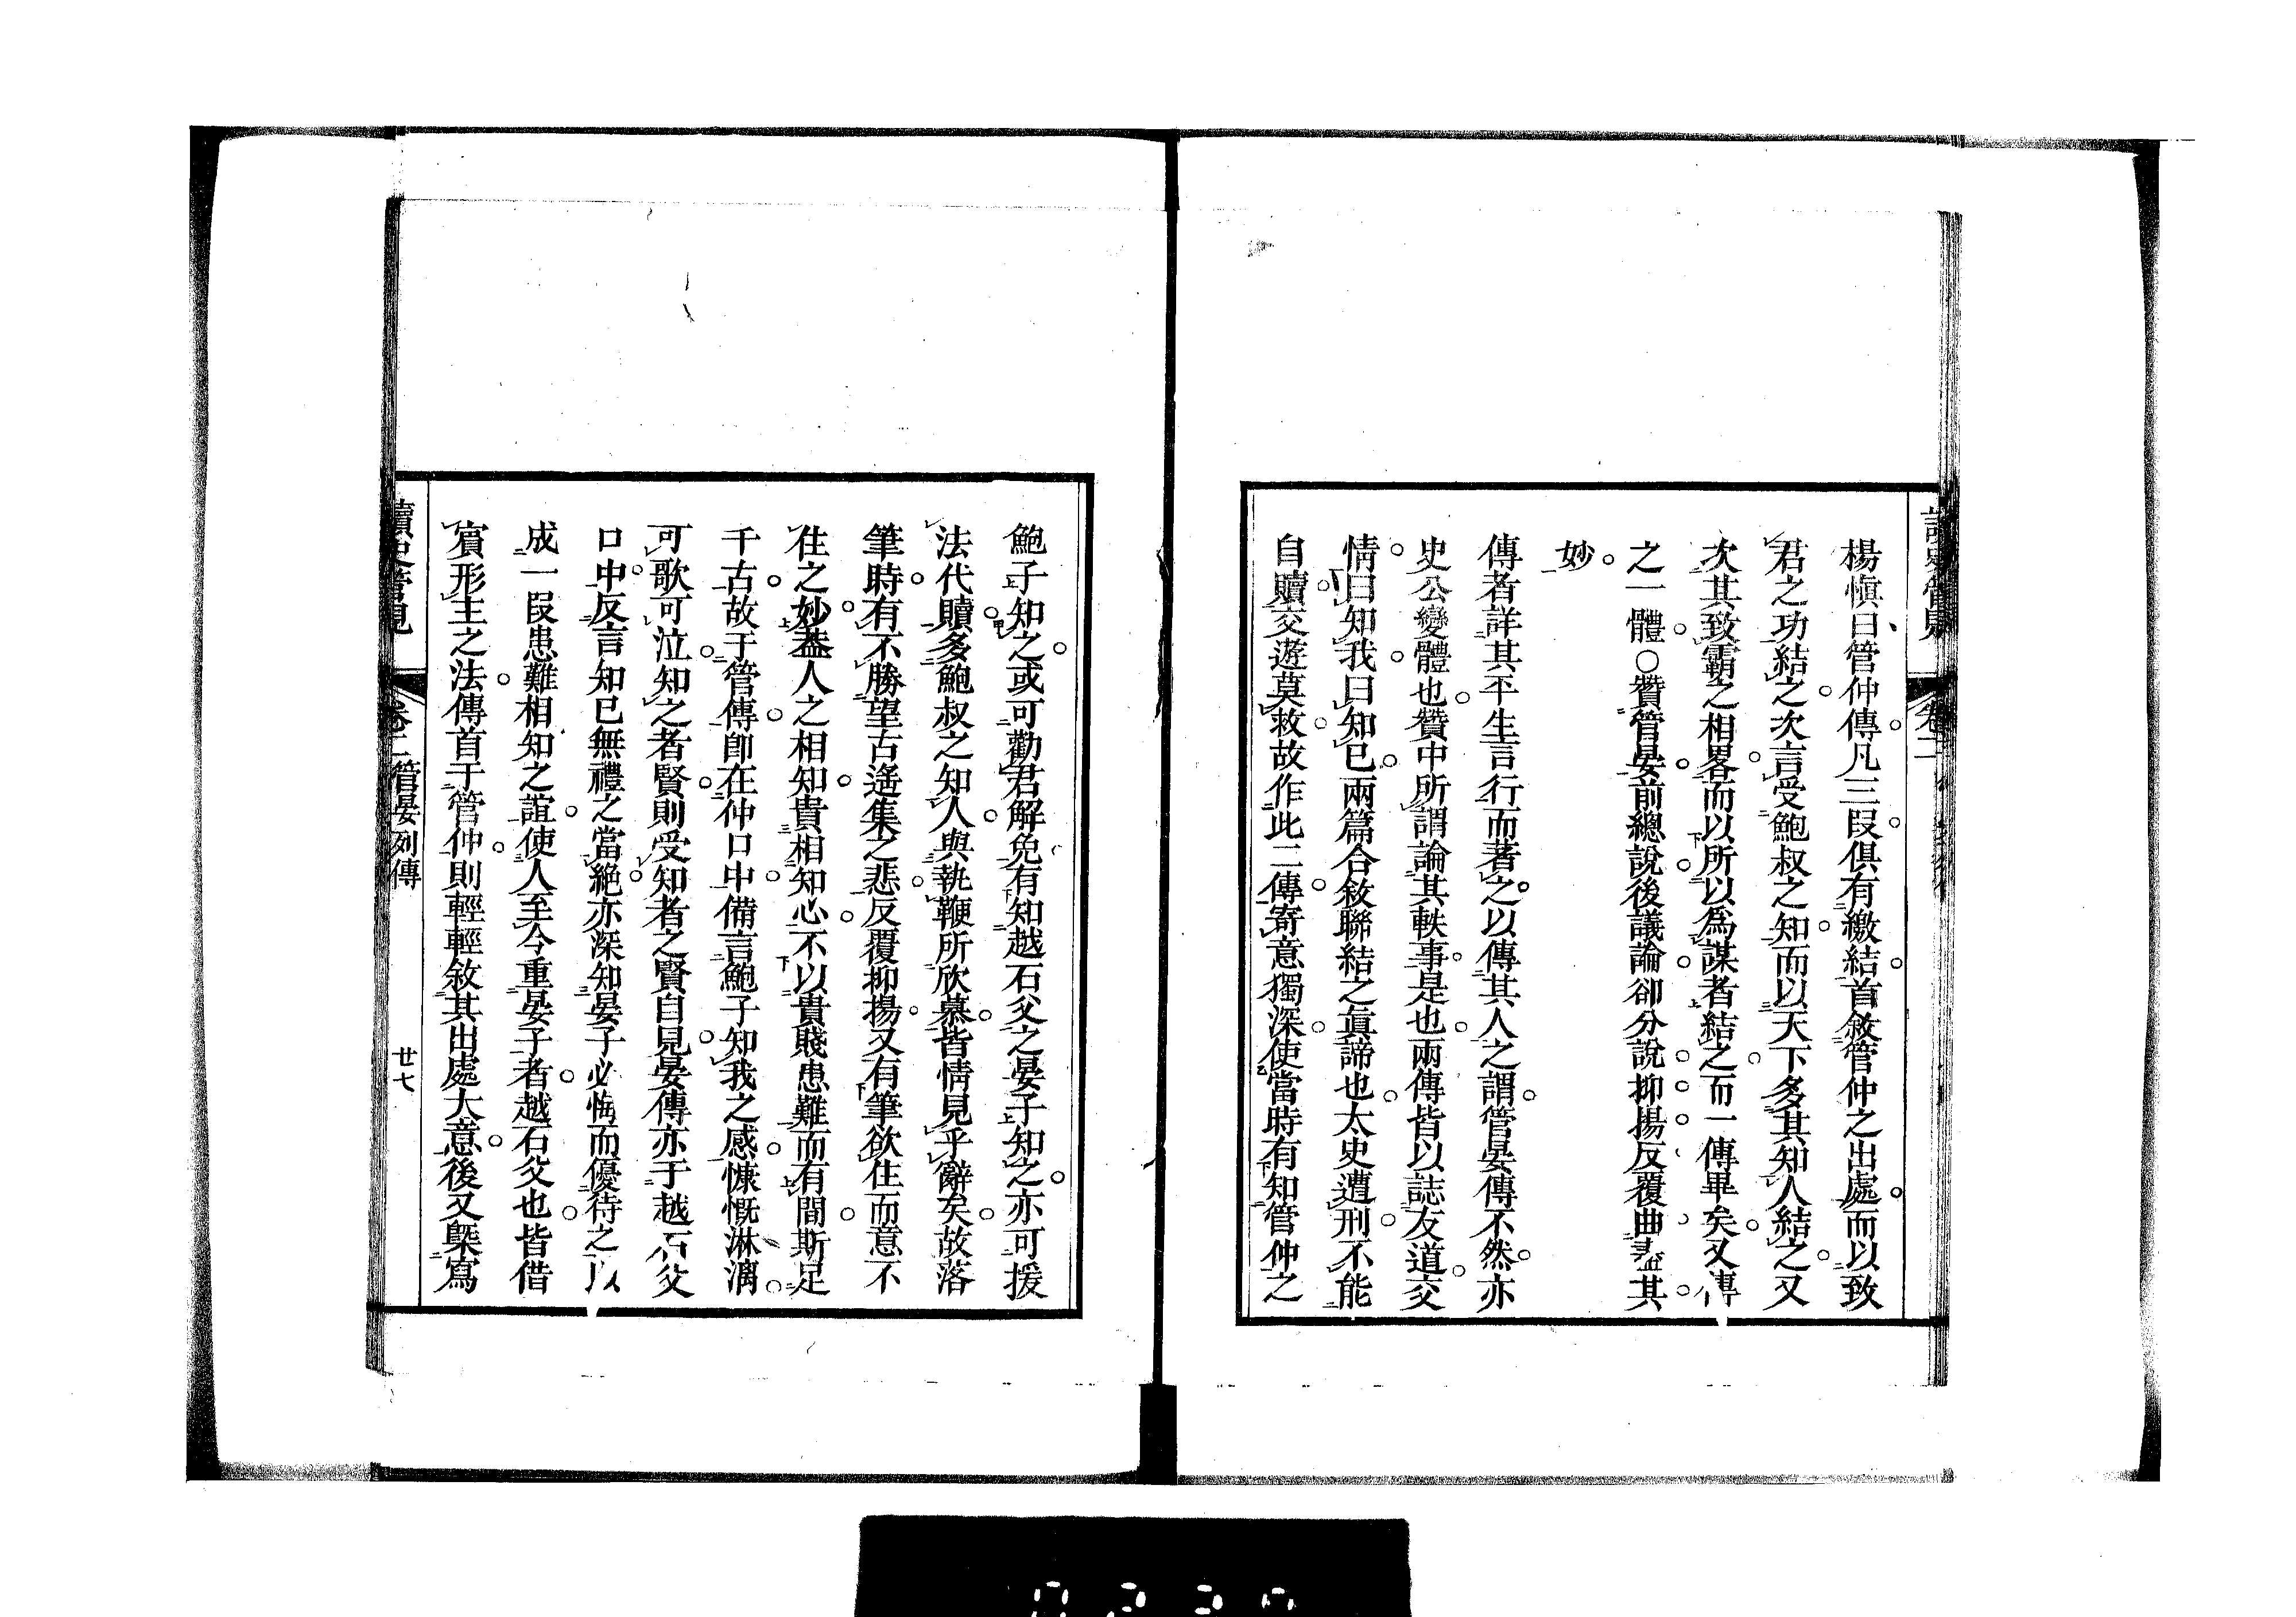 楊愼曰管仲傳凡三段俱有繳結首敘管仲之出處而以致
君之功結之次言受鮑叔之知而以天下多其知人結之又
次其致霸之相畧而以所以爲謀者結之而一傳畢矣又傳
之一體○贊管晏前總說後議論卻分說抑揚反覆曲盡其
妙
傳者詳其平生言行而著之以傳其人之謂管晏傳不然亦
史公變體也贊中所謂論其軼事是也兩傳皆以誌友道交
情曰知我曰知已兩篇合敘聯結之眞諦也太史遭刑不能
自贖交遊莫救故作此二傳寄意獨深使當時有知管仲之
鮑子知之或可勸君解免有知越石父之晏子知之亦可援
法代贖多鮑叔之知人與執鞭所欣慕皆情見乎辭矣故落
筆時有不勝望古遙集之悲反覆抑揚又有筆欲住而意不
住之妙蓋人之相知貴相知心不以貴賤患難而有間斯足
千古故于管傳卽在仲口中備言鮑子知我之感慷慨淋漓
可歌可泣知之者賢則受知者之賢自見晏傳亦于越石父
口中反言知已無禮之當絕亦深知晏子必悔而優待之以
成一段患難相知之誼使人至今重晏子者越石父也皆借
賓形主之法傳首于管仲則輕輕敘其出處大意後又槩寫
讀史管見
卷二 管晏列傳
廿七